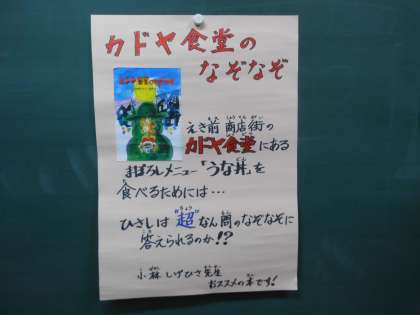 カドヤ食堂の
なぞなぞ
えき前商店街の
カドヤ食堂にある
まぼろしメニュー「うな丼」を
食べるためには…
ひさしは“超”なん問のなぞなぞに
答えられるのか!?
小森しげひさ先生
おススメの本です!